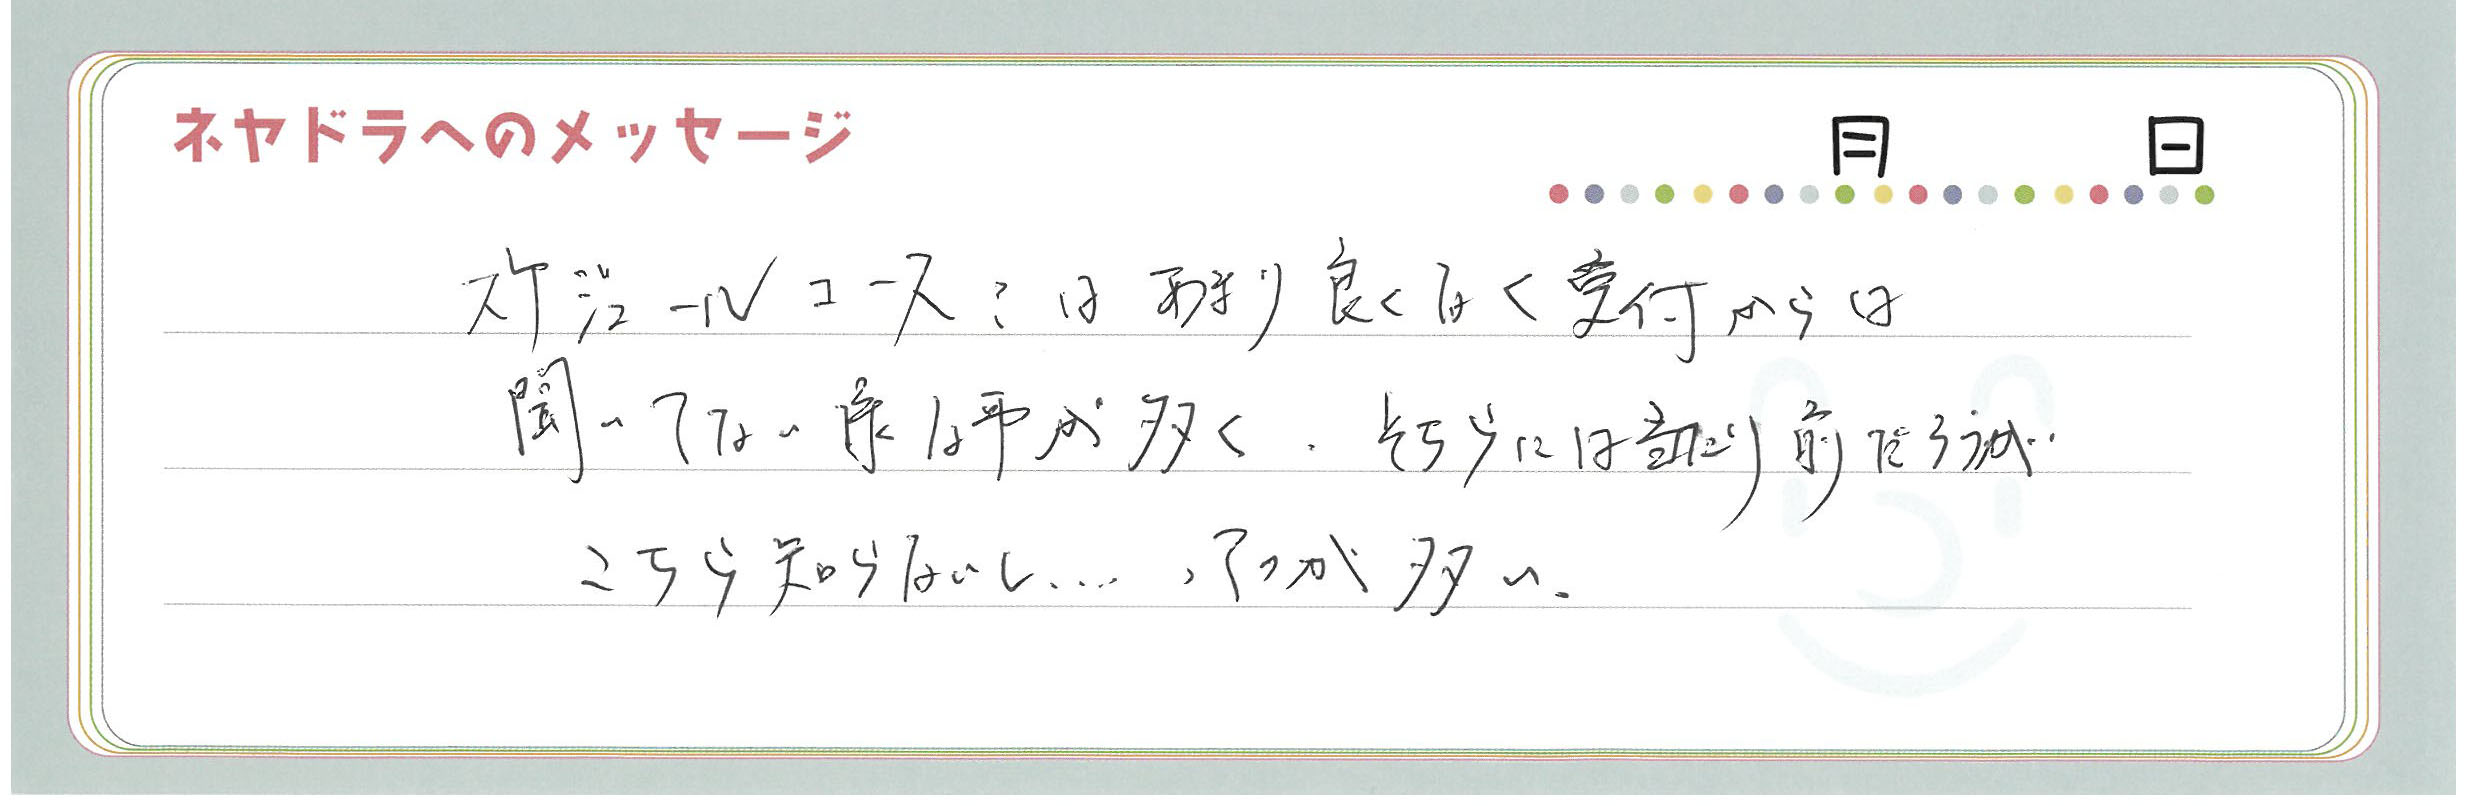 ネヤドラへのメッセージ
月 日
スケジュールコース:はあまり良くはなく受付からは
聞いてない様な事が多く、そちらには当たり前だろうが…
こちら知らないし....、ってのが多い。